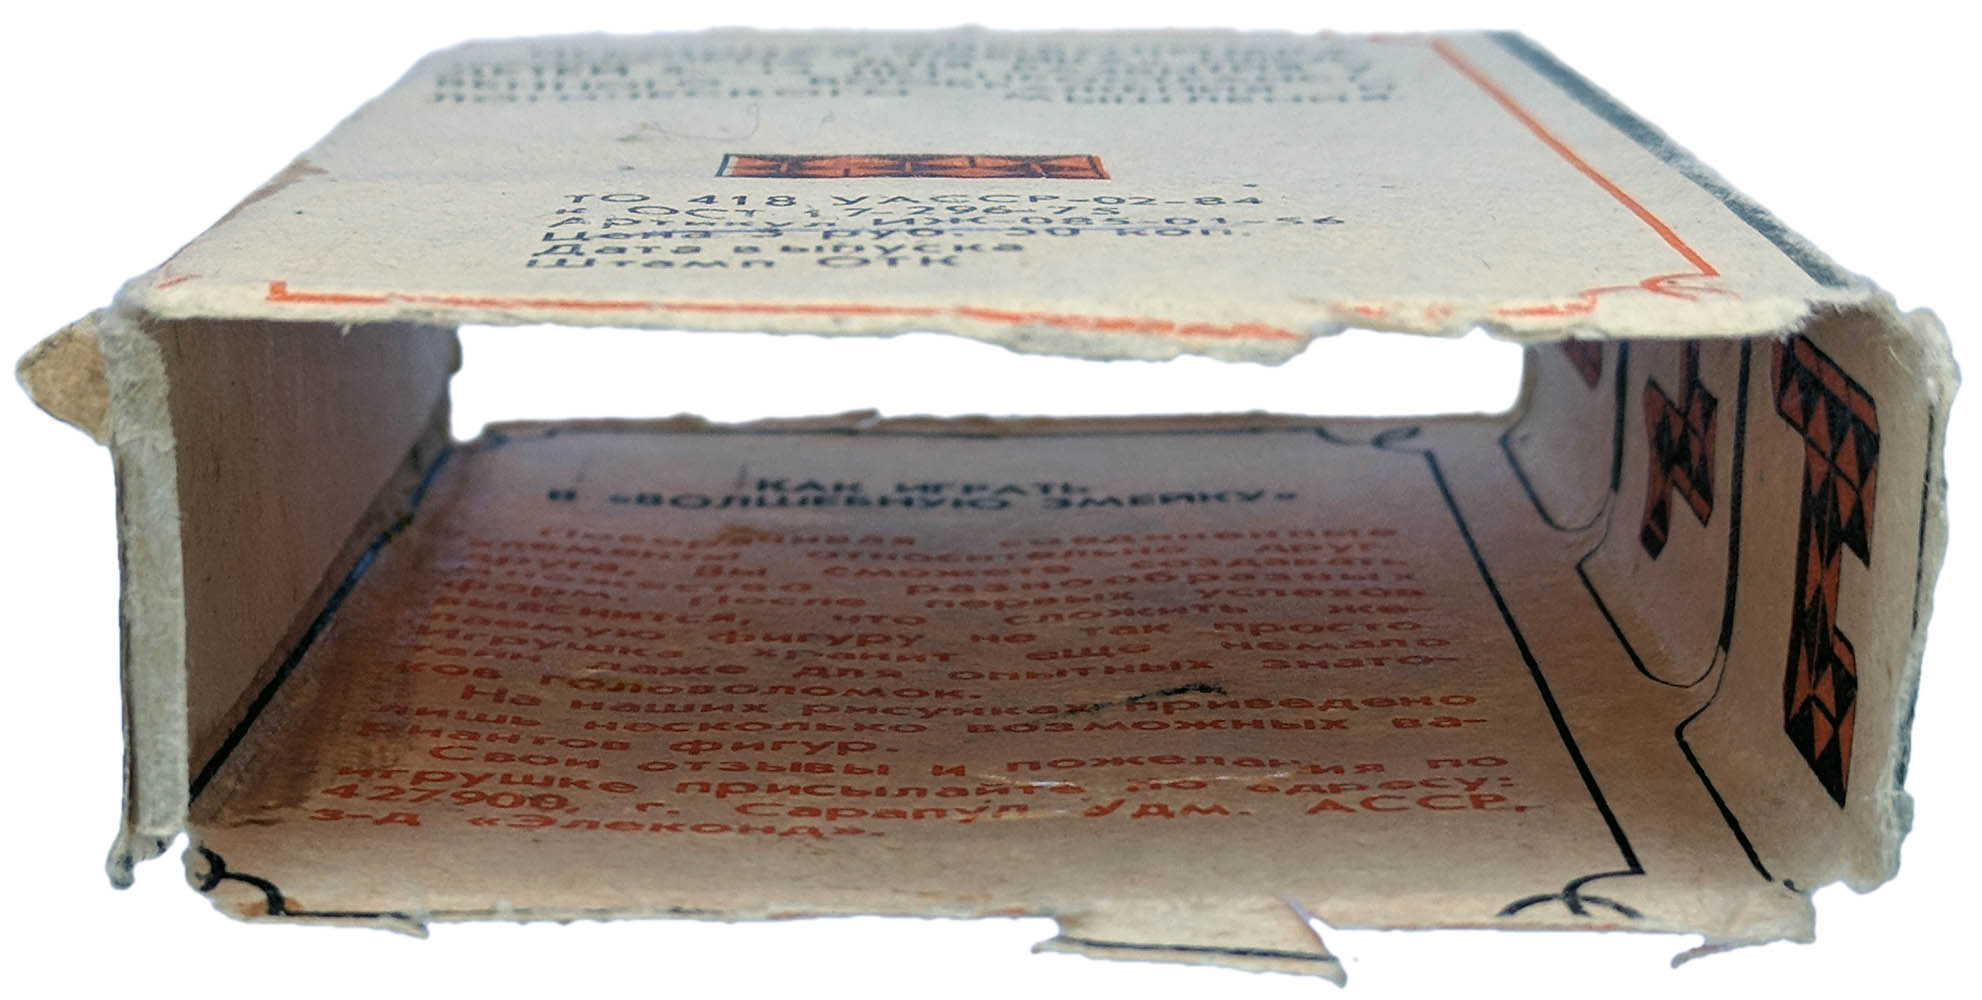 ЛОГИЧЕСКОГО МЫШЛЕНИЯ
ТО 418 УАССР-02-84
и ОСТ 17-396-75
Артикул ИЖ-085-01-56
Цена 3 руб. 50 коп.
Дата выпуска
Штамп ОТК
КАК ИГРАТЬ
В «ВОЛШЕБНУЮ ЗМЕЙКУ»
Поворачивая соединенные
элементы относительно друг
друга, Вы сможете создавать
множество разнообразных
форм. После первых успехов
выяснится, что сложить же-
лаемую фигуру не так просто.
Игрушка хранит еще немало
тайн даже для опытных знато-
ков головоломок.
На наших рисунках приведено
лишь несколько возможных ва-
риантов фигур.
Свои отзывы и пожелания по
игрушке присылайте по адресу:
427900, г. Сарапул Удм. АССР,
з-д «Элеконд».